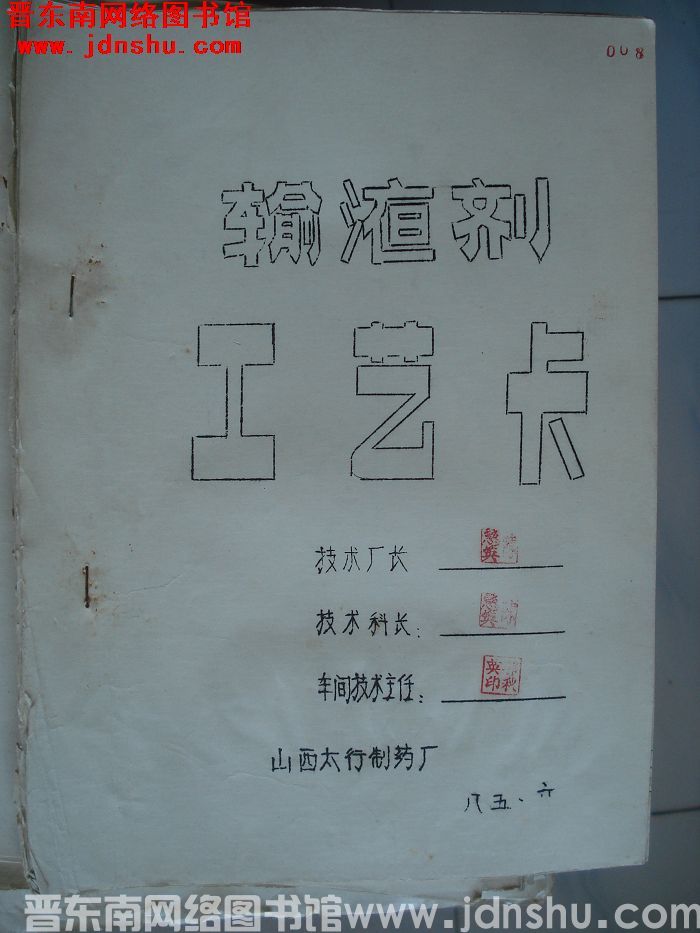 晋东南网络图书馆
www.jdnshu.com
008
输渣剂
工艺卡
技术厂长
技术科长:
车间技术主任:
山西太行制药厂
八五·六
晋东南网络图书馆 www.jdnshu.com